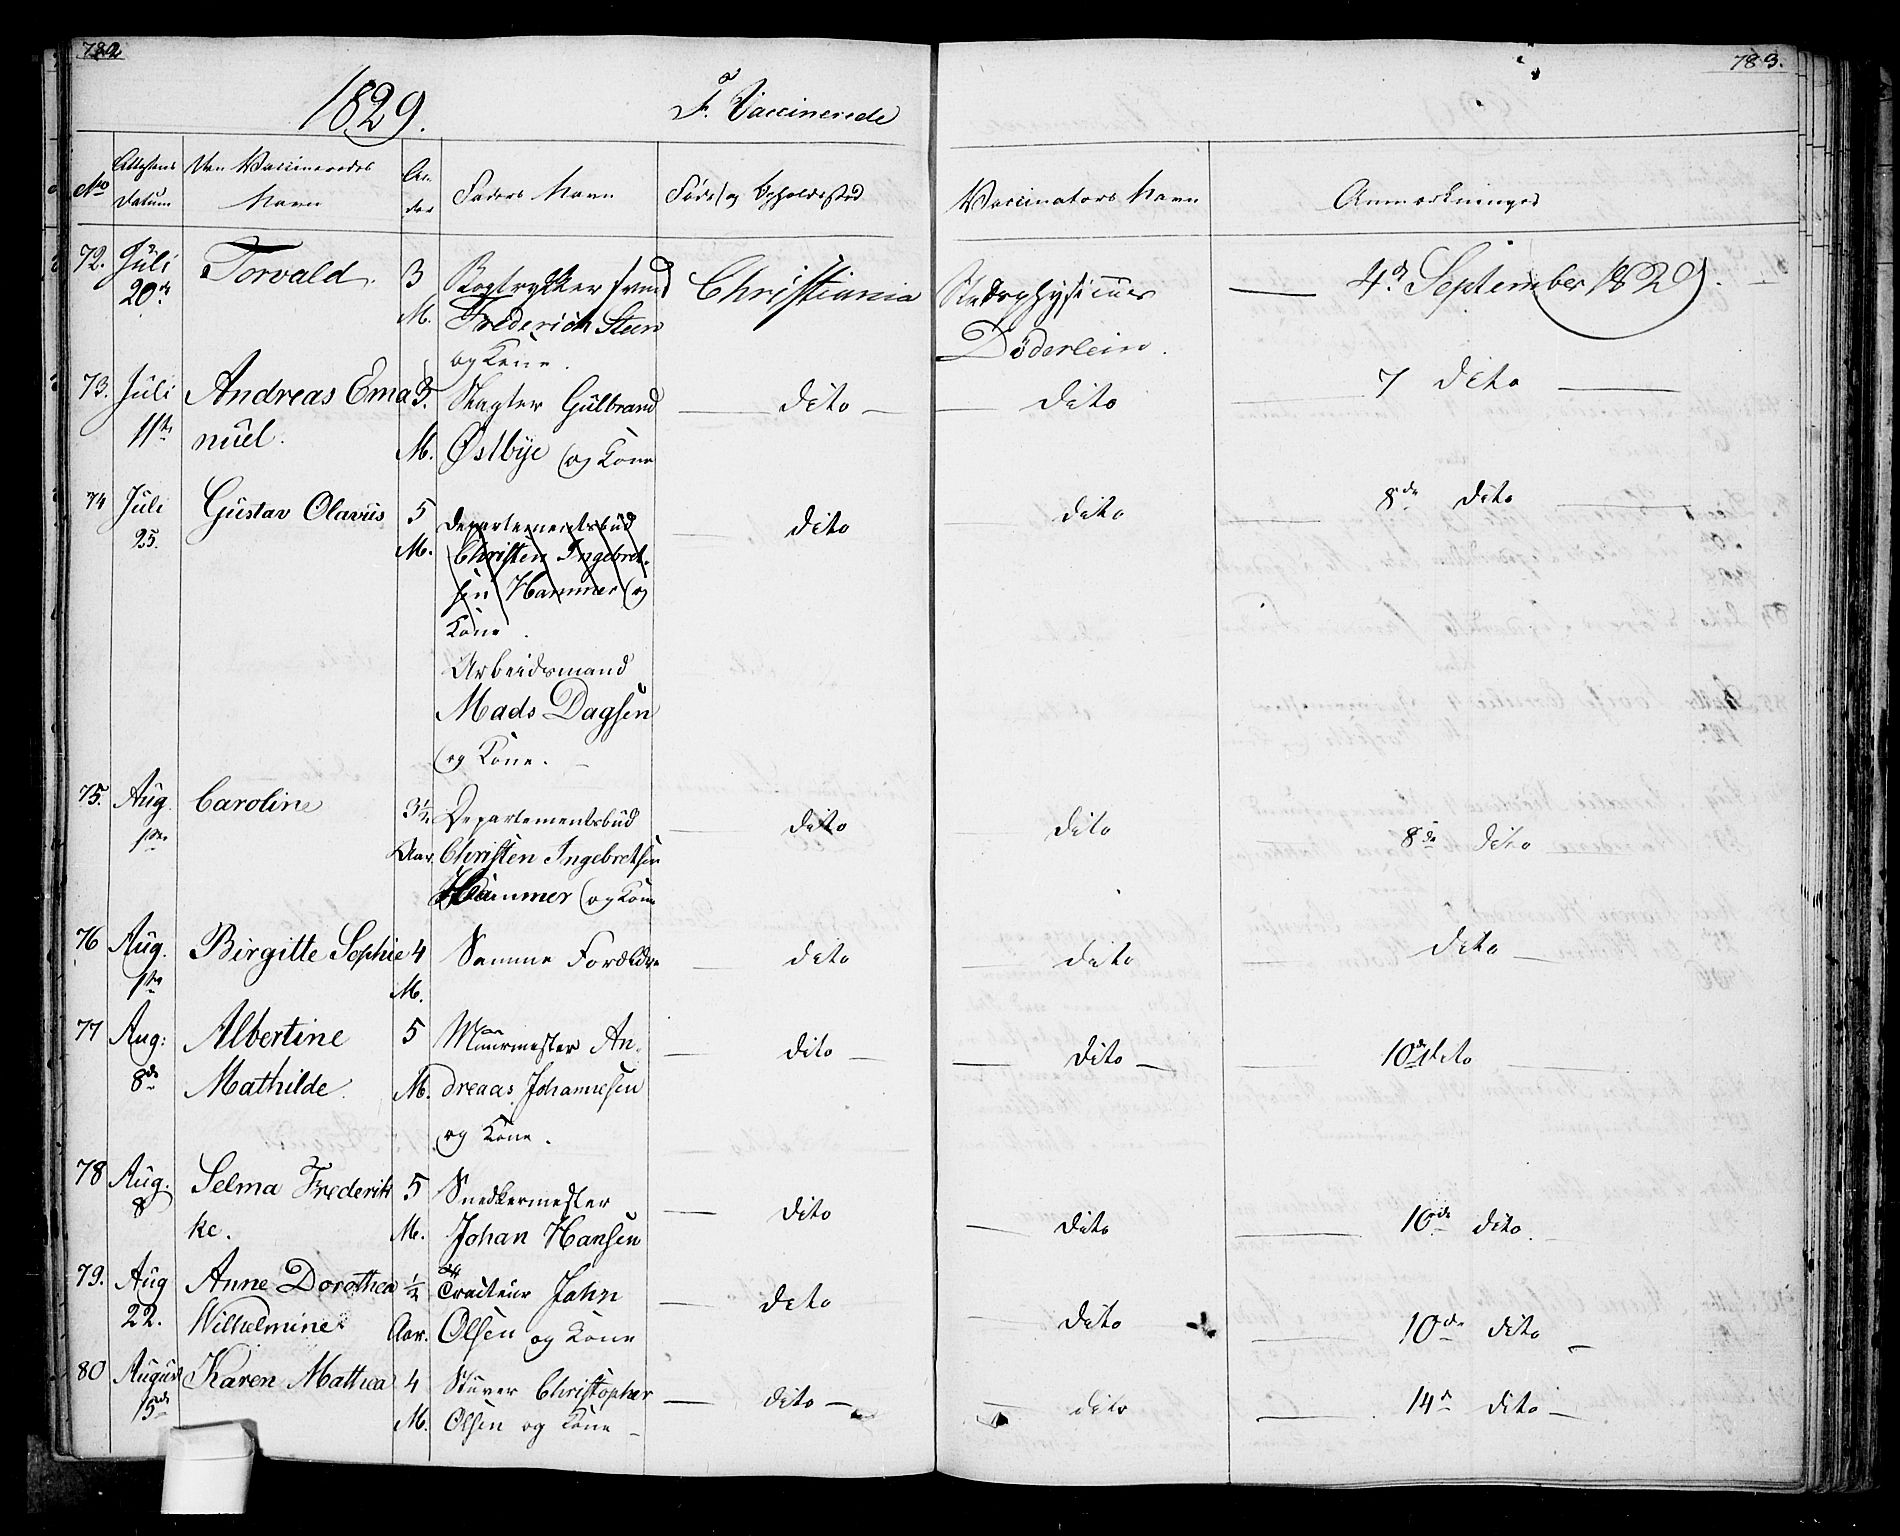 782
783.
1829.
F. Vaccinerede
No Attestens Datum Den Vaccineredes Navn Alder Faders Navn Føde og Opholdssted Vaccinators Navn Anmærkninger
72. Juli 20de Torvald. 3 M. Bogtrykkersvend Frederich Steen og Kone. Christiania Stadsphysicus Döderlein. — 4de September 1829.
73. Juli 11te Andreas Emanuel. 3. M. Slagter Gulbrand Østbye og Kone — dito — — dito 7 dito —
74 Juli 25. Gustav Olavus 5 M. Departementsbud Christen Ingebretsen Hammer og Kone.
Arbeidsmand
Mads Dagsen
og Kone. — dito dito — 8de dito —
75. Aug. 1ste Caroline 3½ Aar Departementsbud Christen Ingebretsen Hammer og Kone — dito dito 8de dito
76 Aug. 1ste Birgitte Sophie 4 M. Samme Forældre — dito — dito — dito —
77 Aug: 8de Albertine Mathilde. 5 M. Muurmester Andreas Johannesen og Kone. — dito — — dito — 10de dito —
78 Aug. 8 Selma Frederikke. 5 M. Snedkermester Johan Hansen — dito — dito — 10de dito.
79. Aug 22. Anne Dorothea Wilhelmine ½ Aar. Tracteur John Olsen og Kone — dito — dito — 10de dito —
80 August 15de Karen Mathea 4 M. Stuver Christopher Olsen og Kone — — dito — — dito — 14de dito —